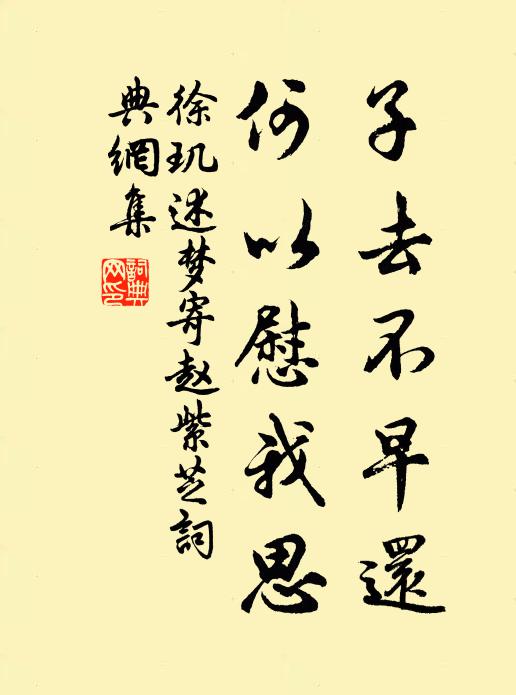 子去不早還
何以慰我思
徐玑述梦寄赵紫芝詞
典網集
詞典网印